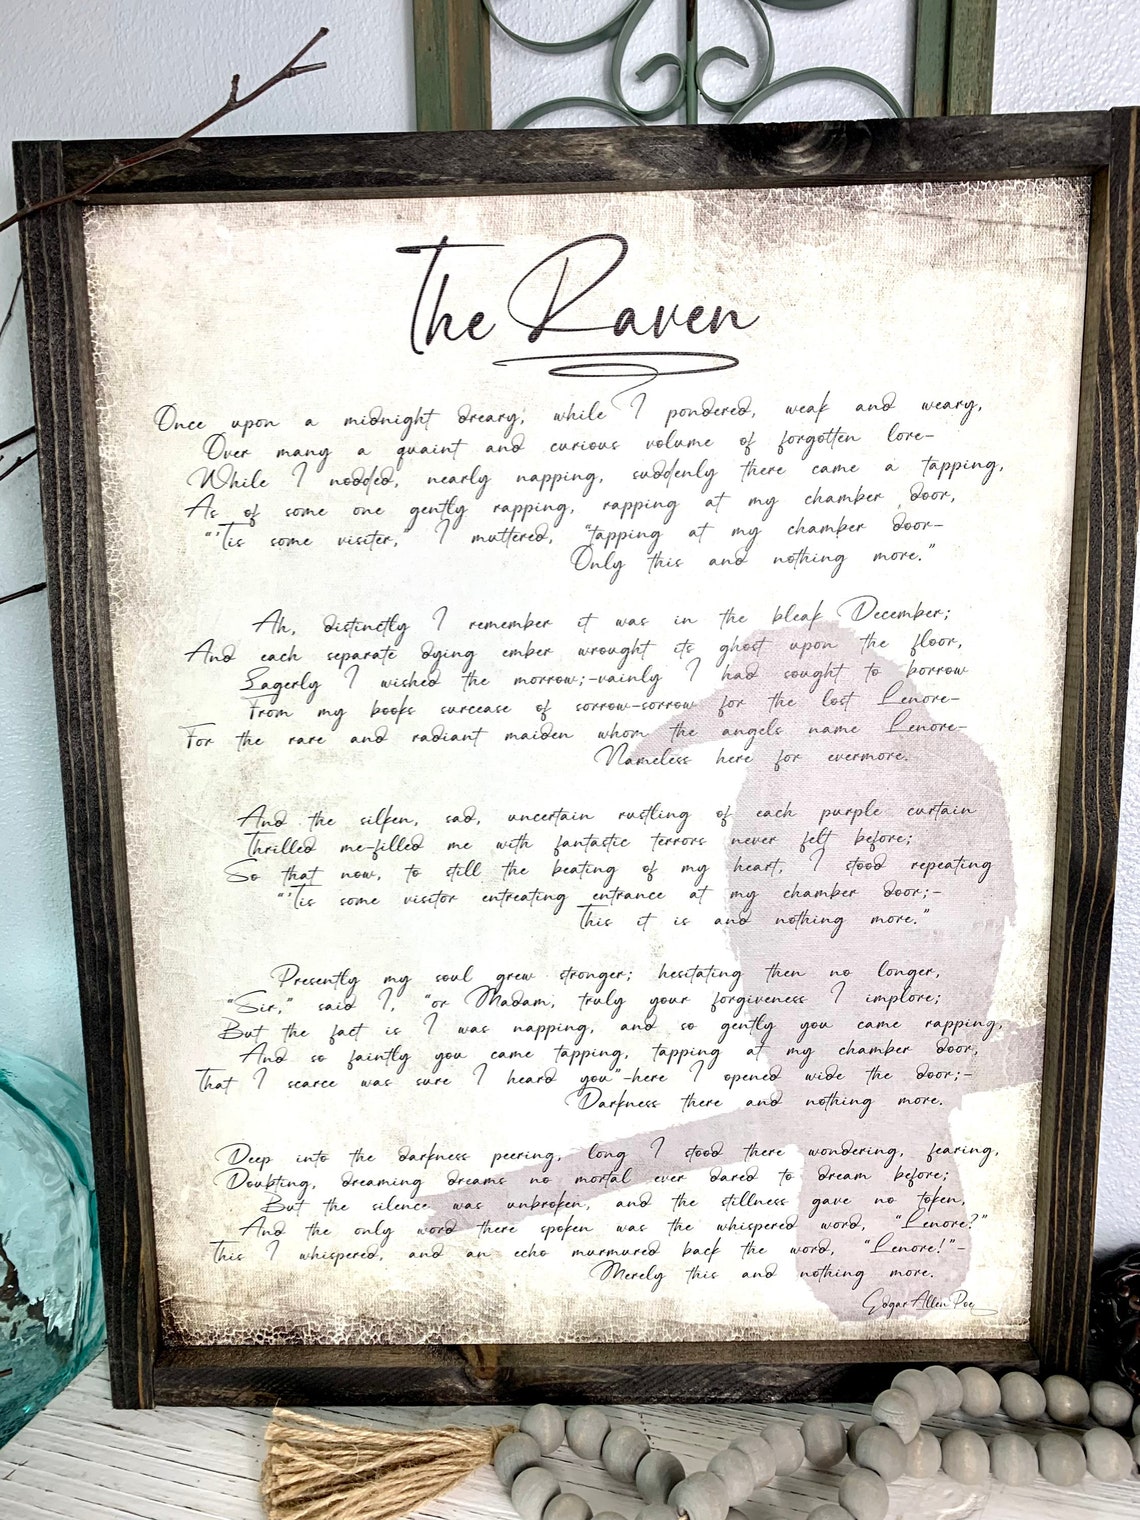 The Raven
Once upon a midnight dreary, while I pondered, weak and weary,
Over many a quaint and curious volume of forgotten lore-
While I nodded, nearly napping, suddenly there came a tapping,
As of some one gently rapping, rapping at my chamber door,
"'Tis some visiter," I muttered, "tapping at my chamber door-
Only this and nothing more."
Ah, distinctly I remember it was in the bleak December;
And each separate dying ember wrought its ghost upon the floor,
Eagerly I wished the morrow;-vainly I had sought to borrow
From my books surcease of sorrow-sorrow for the lost Lenore-
For the rare and radiant maiden whom the angels name Lenore-
Nameless here for evermore.
And the silken, sad, uncertain rustling of each purple curtain
Thrilled me-filled me with fantastic terrors never felt before;
So that now, to still the beating of my heart, I stood repeating
"'Tis some visitor entreating entrance at my chamber door;-
This it is and nothing more."
Presently my soul grew stronger; hesitating then no longer,
"Sir," said I, "or Madam, truly your forgiveness I implore;
But the fact is I was napping, and so gently you came rapping,
And so faintly you came tapping, tapping at my chamber door,
That I scarce was sure I heard you"-here I opened wide the door;-
Darkness there and nothing more.
Deep into the darkness peering, long I stood there wondering, fearing,
Doubting, dreaming dreams no mortal ever dared to dream before;
But the silence was unbroken, and the stillness gave no token,
And the only word there spoken was the whispered word, "Lenore?"
This I whispered, and an echo murmured back the word, "Lenore!"-
Merely this and nothing more.
Edgar Allen Poe